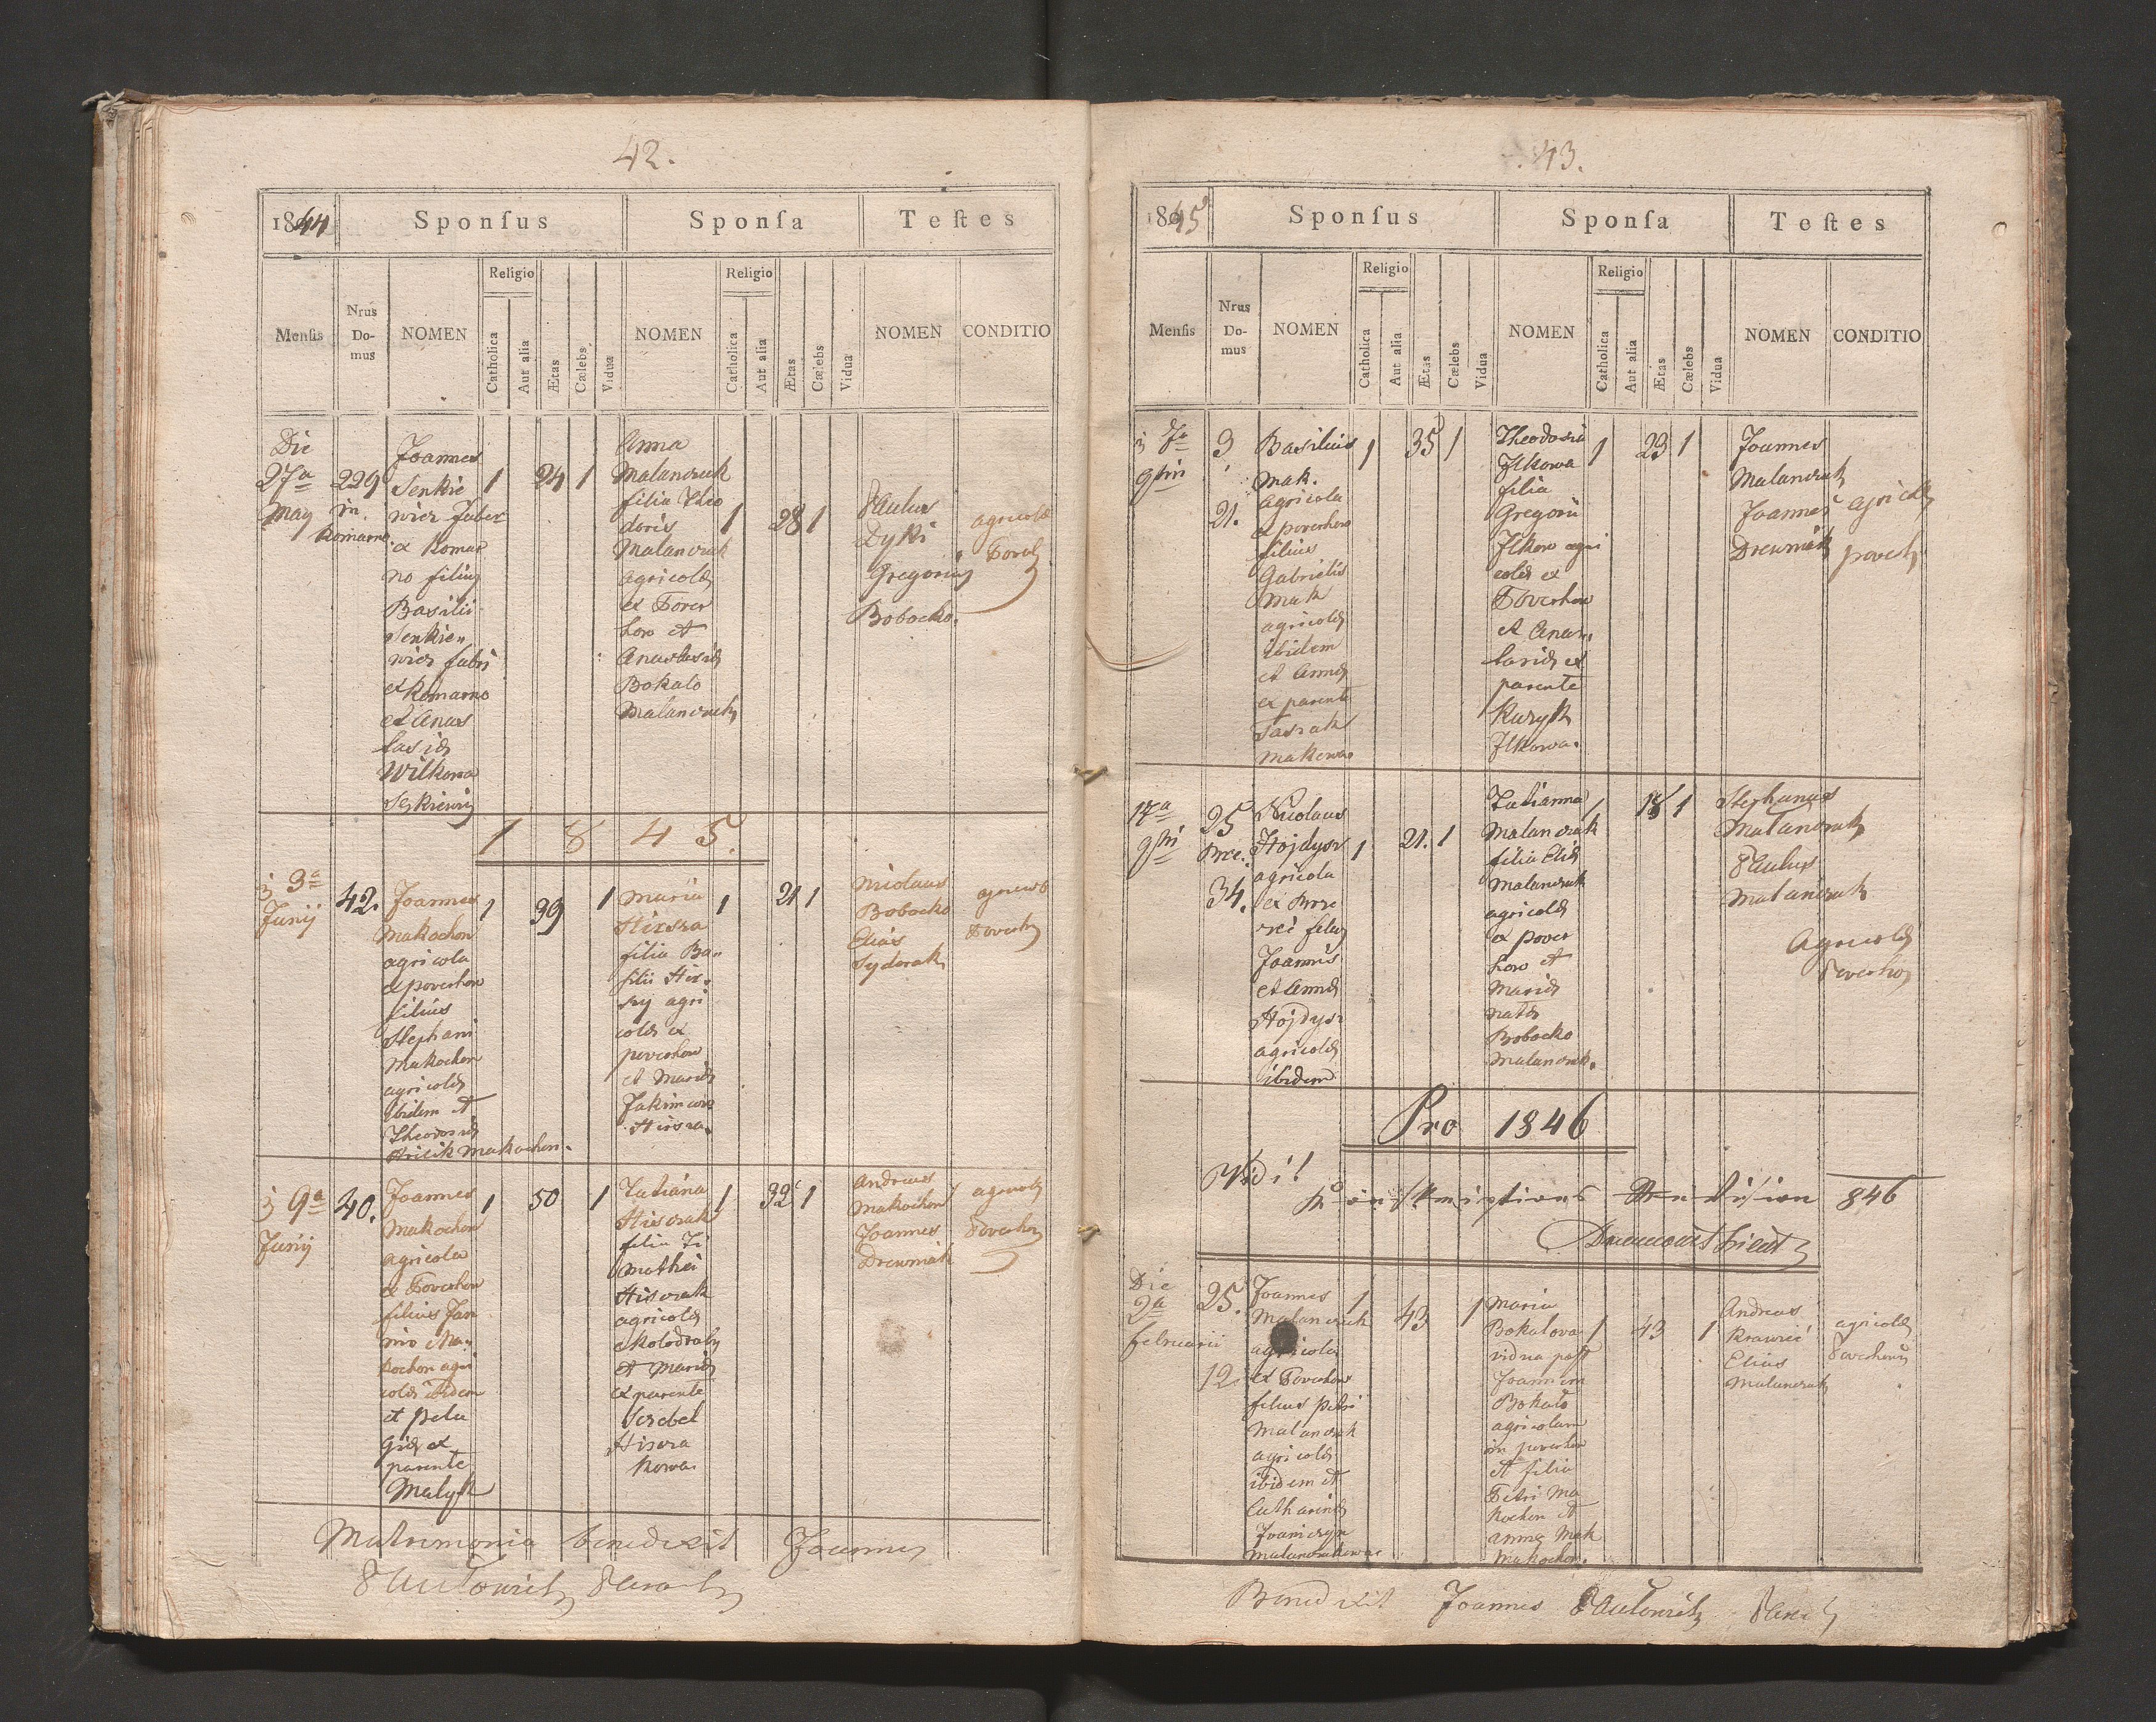 42.
1844
Sponſus
Sponſa
Teſtes
Menſis
Nrus Domus
NOMEN
Religio
Catholica
Aut alia
Ætas
Cælebs
Vidua
NOMEN
Religio
Catholica
Aut alia
Ætas
Cælebs
Vidua
NOMEN
CONDITIO
Die
27a
May
229
in
Komarno
Joannes
Senkie
wicz faber
ex Komar
no filius
Basilii
Senkie„
wicz fabri
ex Komarno
et Anas
tasiæ
Wilkowa
1
24
1
Anna
Malanczuk
filia Theo
doris
Malanczuk
agricolæ
ex Pover
how et
Anastasiæ
Bokalo
Malanczuk
1
28
1
Paulus
Dyki
Gregorius
Bobocko.
agricolæ
1845.
3a
Junij
42.
Joannes
Makochon
agricola
ex poverhow
filius
Stephani
Makochon
agricolæ
ibidem et
Theodosiæ
Makochon.
1
39
1
Maria
filia Ba„
silii
agri
colæ ex
poverhow
et Mariæ
1
21
1
Nicolaus
Bobocko
Elias
Syderak
9a
Junij
40.
Joannes
Makochon
agricola
ex Poverhow
filius Jan
Ma„
kochon agri
colæ ibidem
et Pela
giæ ex
parente
Malyk
1
50
1
Tatiana
filia Ti
mothei
agricolæ
et Mariæ
ex parente
kowa.
1
32
1
Andreas
Makochon
Joannes
Drewniak
agricolæ
Matrimonia benedixit Joannes
43.
1845
Sponſus
Sponſa
Teſtes
Menſis
Nrus Domus
NOMEN
Religio
Catholica
Aut alia
Ætas
Cælebs
Vidua
NOMEN
Religio
Catholica
Aut alia
Ætas
Cælebs
Vidua
NOMEN
CONDITIO
7a
9bris
3
21.
Basilius
Mak.
agricola
ex poverhow
filius
Gabrielis
Mak
agricolæ
ibidem
et Annæ
ex parente
Makowa.
1
35
1
Theodosia
Ilkowa
filia
Gregorii
Ilkow agri
colæ ex
Poverhow
et Anas„
tasiæ ex
parente
Ilkowa.
1
23
1
Joannes
Malanczuk
Joannes
Drewniak
agricolæ
17a
9bris
25
34.
Nicolaus
Hojdysz
agricola
filius
Joannis
et Annæ
Hojdysz
agricolæ
ibidem
1
21.
1
Tatianna
Malanczuk
filia Eliæ
Malanczuk
agricolæ
ex pover
how et
Mariæ
natæ
Bobocko
Malanczuk.
1
18
1
Stephanus
Malanczuk
Paulus
Malanczuk
Agricolæ
Pro 1846
Vidi!
846
Die
2a
februarii
25.
12.
Joannes
Malanczuk
agricola
ex Poverhow
filius Petri
Malanczuk
agricolæ
ibidem et
Catharinæ
1
43
1
Maria
Bokalova
vidua post
Joannem
Bokalo
agricolam
in poverhow
et filia
Petri Ma
kochon et
Annæ Mak
Makochon.
1
43
1
Andreas
Krawcić
Elias
Malanczuk
agricolæ
Benedixit Joannes